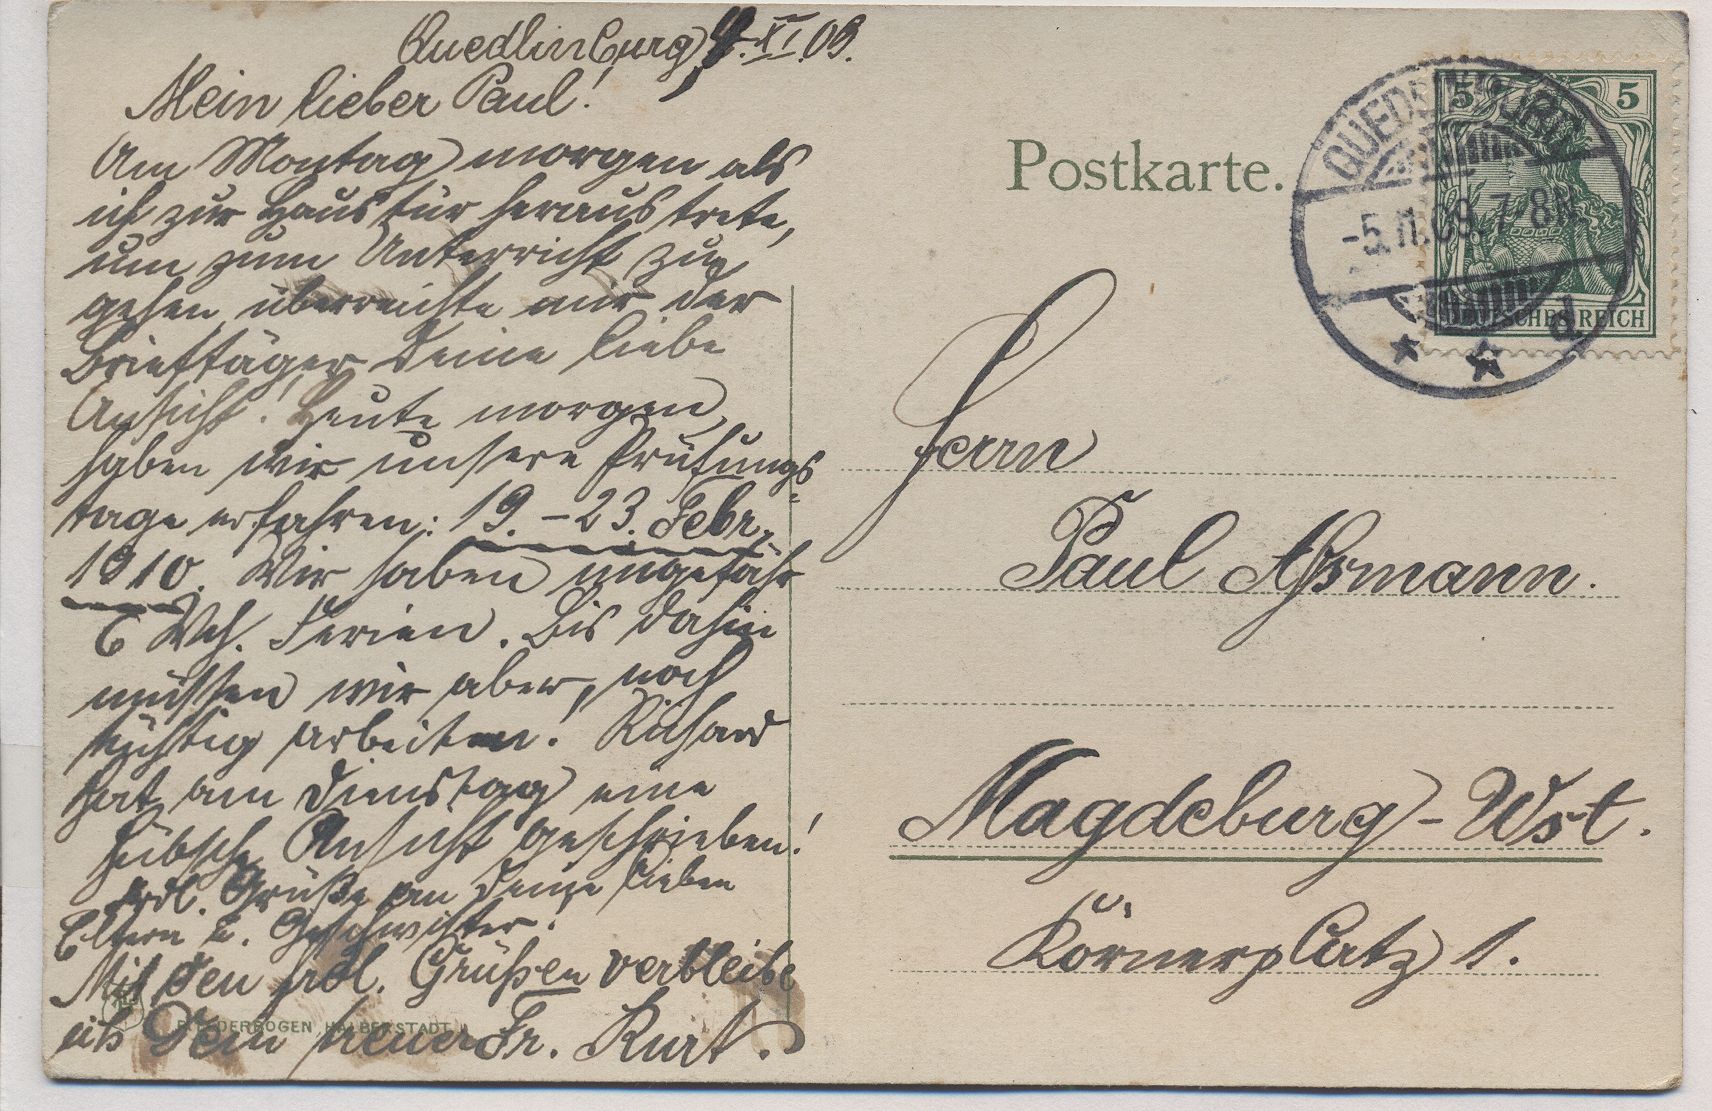 Quedlinburg, 4. XI. 09.
Mein lieber Paul!
Am Montag morgen als
ich zur Haustür heraustrete,
um zum Unterricht zu
gehen überreichte mir der
Briefträger Deine liebe
Ansicht! Heute morgen
haben wir unsere Prüfungs-
tage erfahren: 19. – 23. Febr.
1910. Wir haben ungefähr
6 Wch. Ferien. Bis dahin
müssen wir aber noch
tüchtig arbeiten! Richard
hat am Dienstag eine
hübsche Ansicht geschrieben!
Frdl. Grüße an Deine lieben
Eltern u. Geschwister!
Mit den frdl. Grüßen verbleibe
ich Dein treuer Fr. Kurt.
LEDERBOGEN, HALBERSTADT
Postkarte.
5 5
DEUTSCHES REICH
QUEDLINBURG
-5.11.09. 7-8N.
* * d
Herrn
Paul Assmann.
Magdeburg – Wst.
Körnerplatz 1.